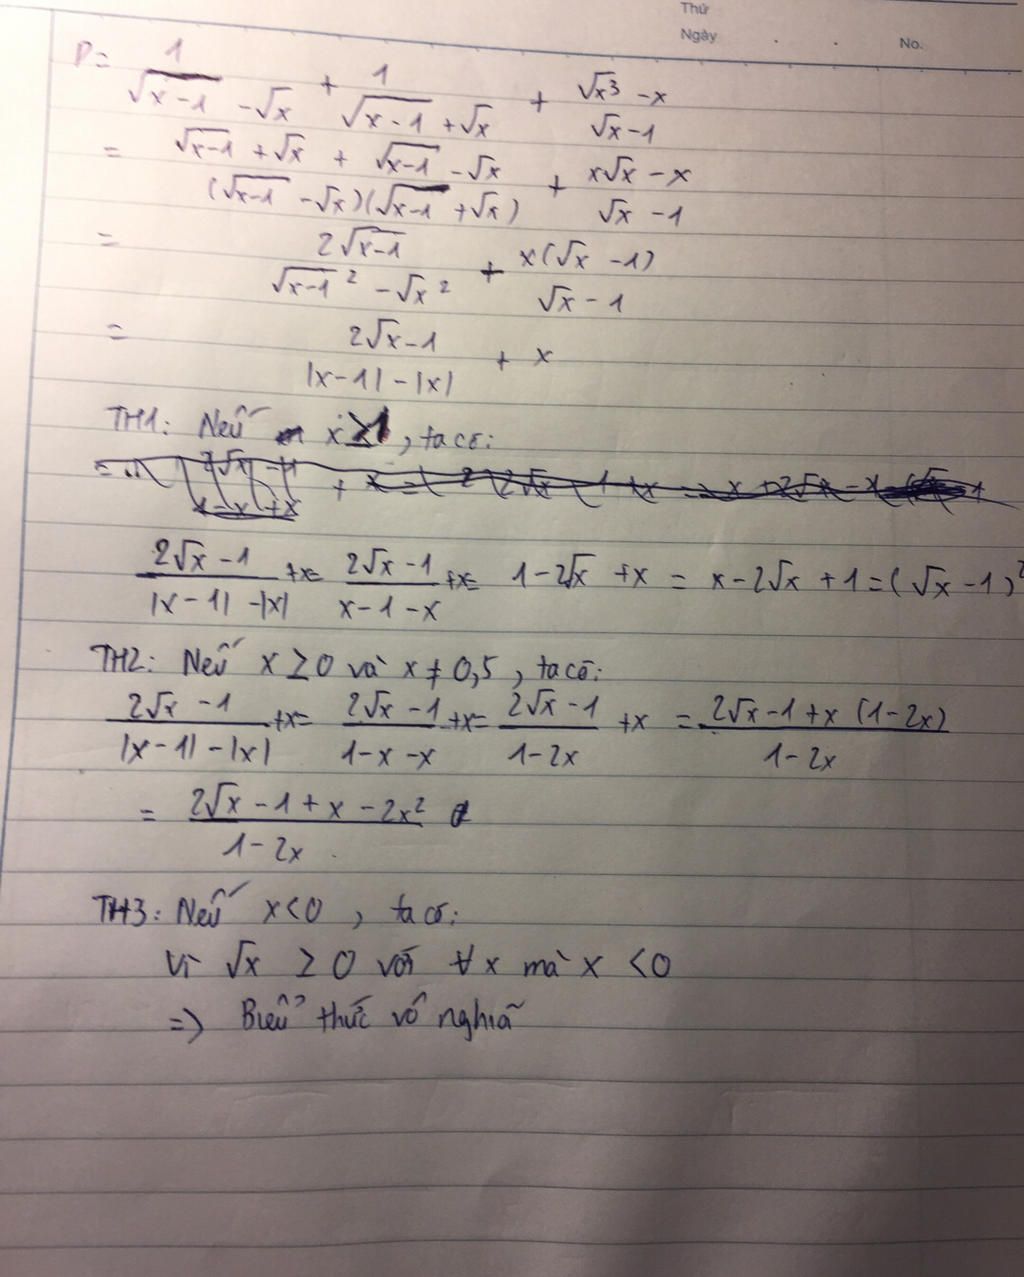 Thứ
Ngày . . No.
P = 1/(√(x-1) - √x) + 1/(√(x-1) + √x) + (√x³ - x)/(√x - 1)
= (√(x-1) + √x + √(x-1) - √x)/((√(x-1) - √x)(√(x-1) + √x)) + (x√x - x)/(√x - 1)
= 2√(x-1)/(√(x-1)² - √x²) + x(√x - 1)/(√x - 1)
= (2√x - 1)/(|x-1| - |x|) + x
TH1: Nếu x ≥ 1, ta có:
(2√x - 1)/(|x-1| - |x|) + x = (2√x - 1)/(x - 1 - x) + x = 1 - 2√x + x = x - 2√x + 1 = (√x - 1)²
TH2: Nếu x ≥ 0 và x ≠ 0,5, ta có:
(2√x - 1)/(|x-1| - |x|) + x = (2√x - 1)/(1 - x - x) + x = (2√x - 1)/(1 - 2x) + x = (2√x - 1 + x (1 - 2x))/(1 - 2x)
= (2√x - 1 + x - 2x²)/(1 - 2x)
TH3: Nếu x < 0, ta có:
Vì √x ≥ 0 với ∀x mà x < 0
=> Biểu thức vô nghĩa